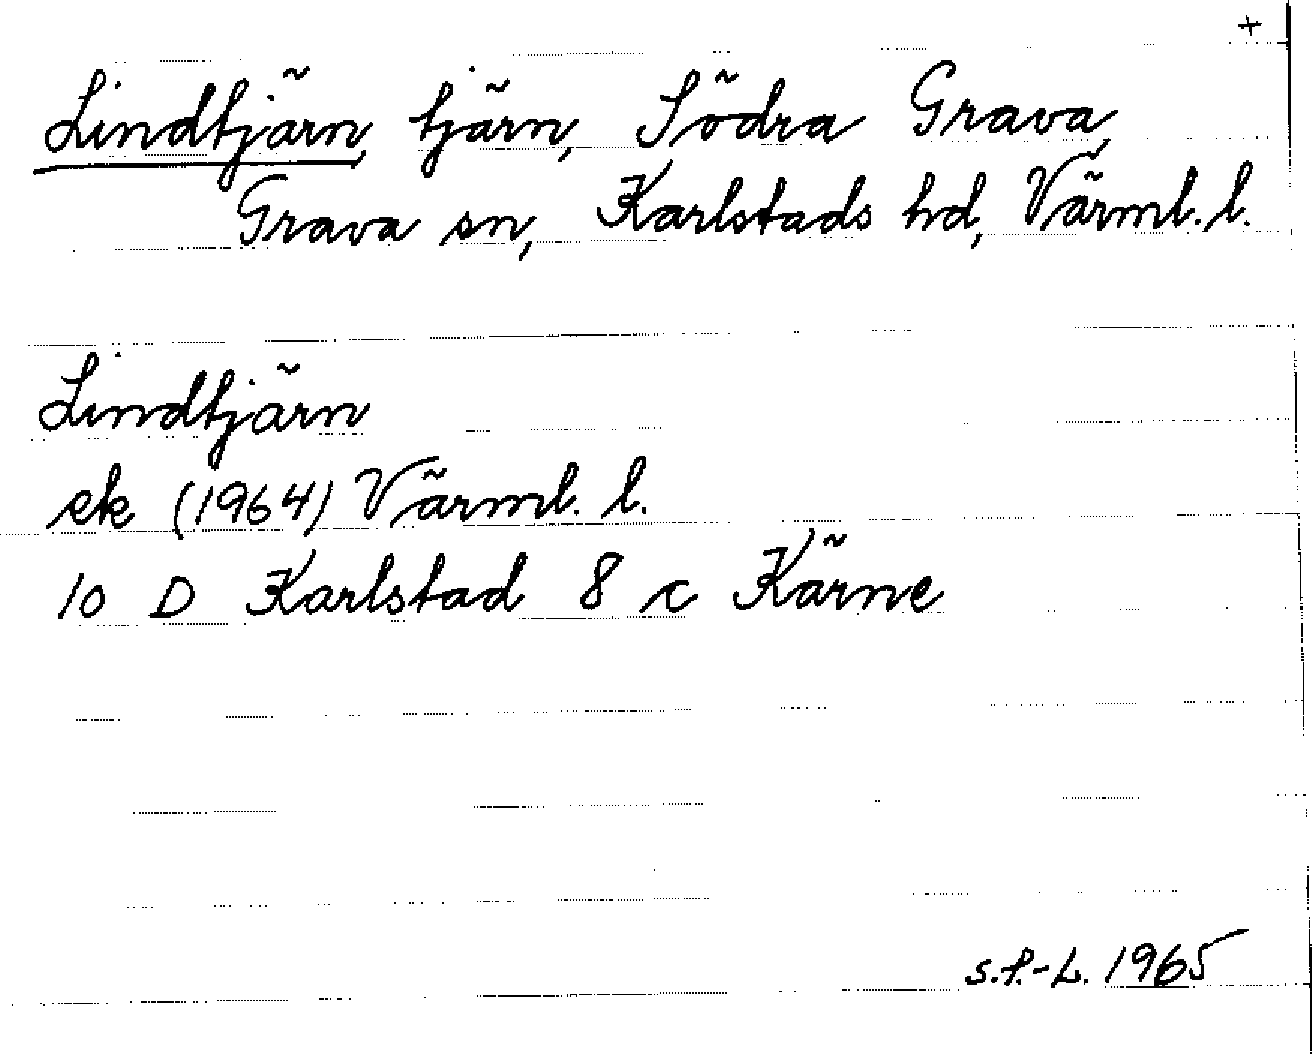 +
Lindtjärn, tjärn, Södra Grava,
Grava sn, Karlstads hd, Värml. l.
Lindtjärn
ek (1964) Värml. l.
10 D Karlstad 8 c Kärne
S.P.-L. 1965